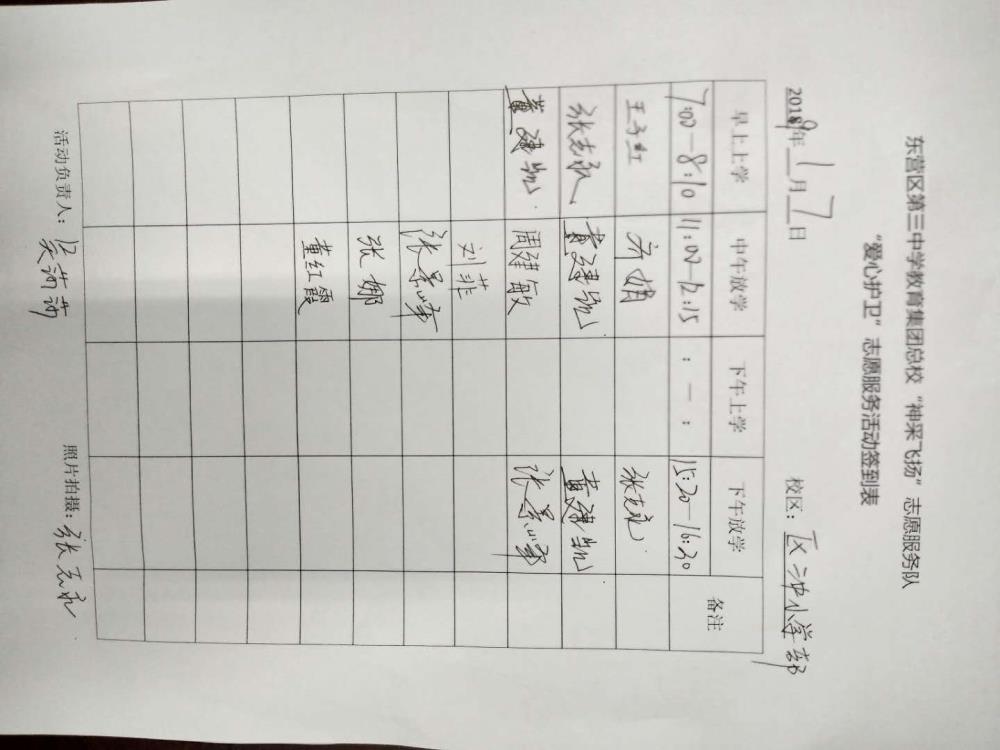 东营区第三中学教育集团总校“神采飞扬”志愿服务队
“爱心护卫”志愿服务活动签到表
2019年1月7日 校区:区三中小学部
早上上学 中午放学 下午上学 下午放学 备注
7:00-8:10 11:00-12:15 : - : 15:20-16:30
王子红 齐婧 张志永
张志永 黄建凯 黄建凯
黄建凯 周建敏 张景峰
刘菲
张景峰
张娜
董红霞
活动负责人: 照片拍摄:张志永